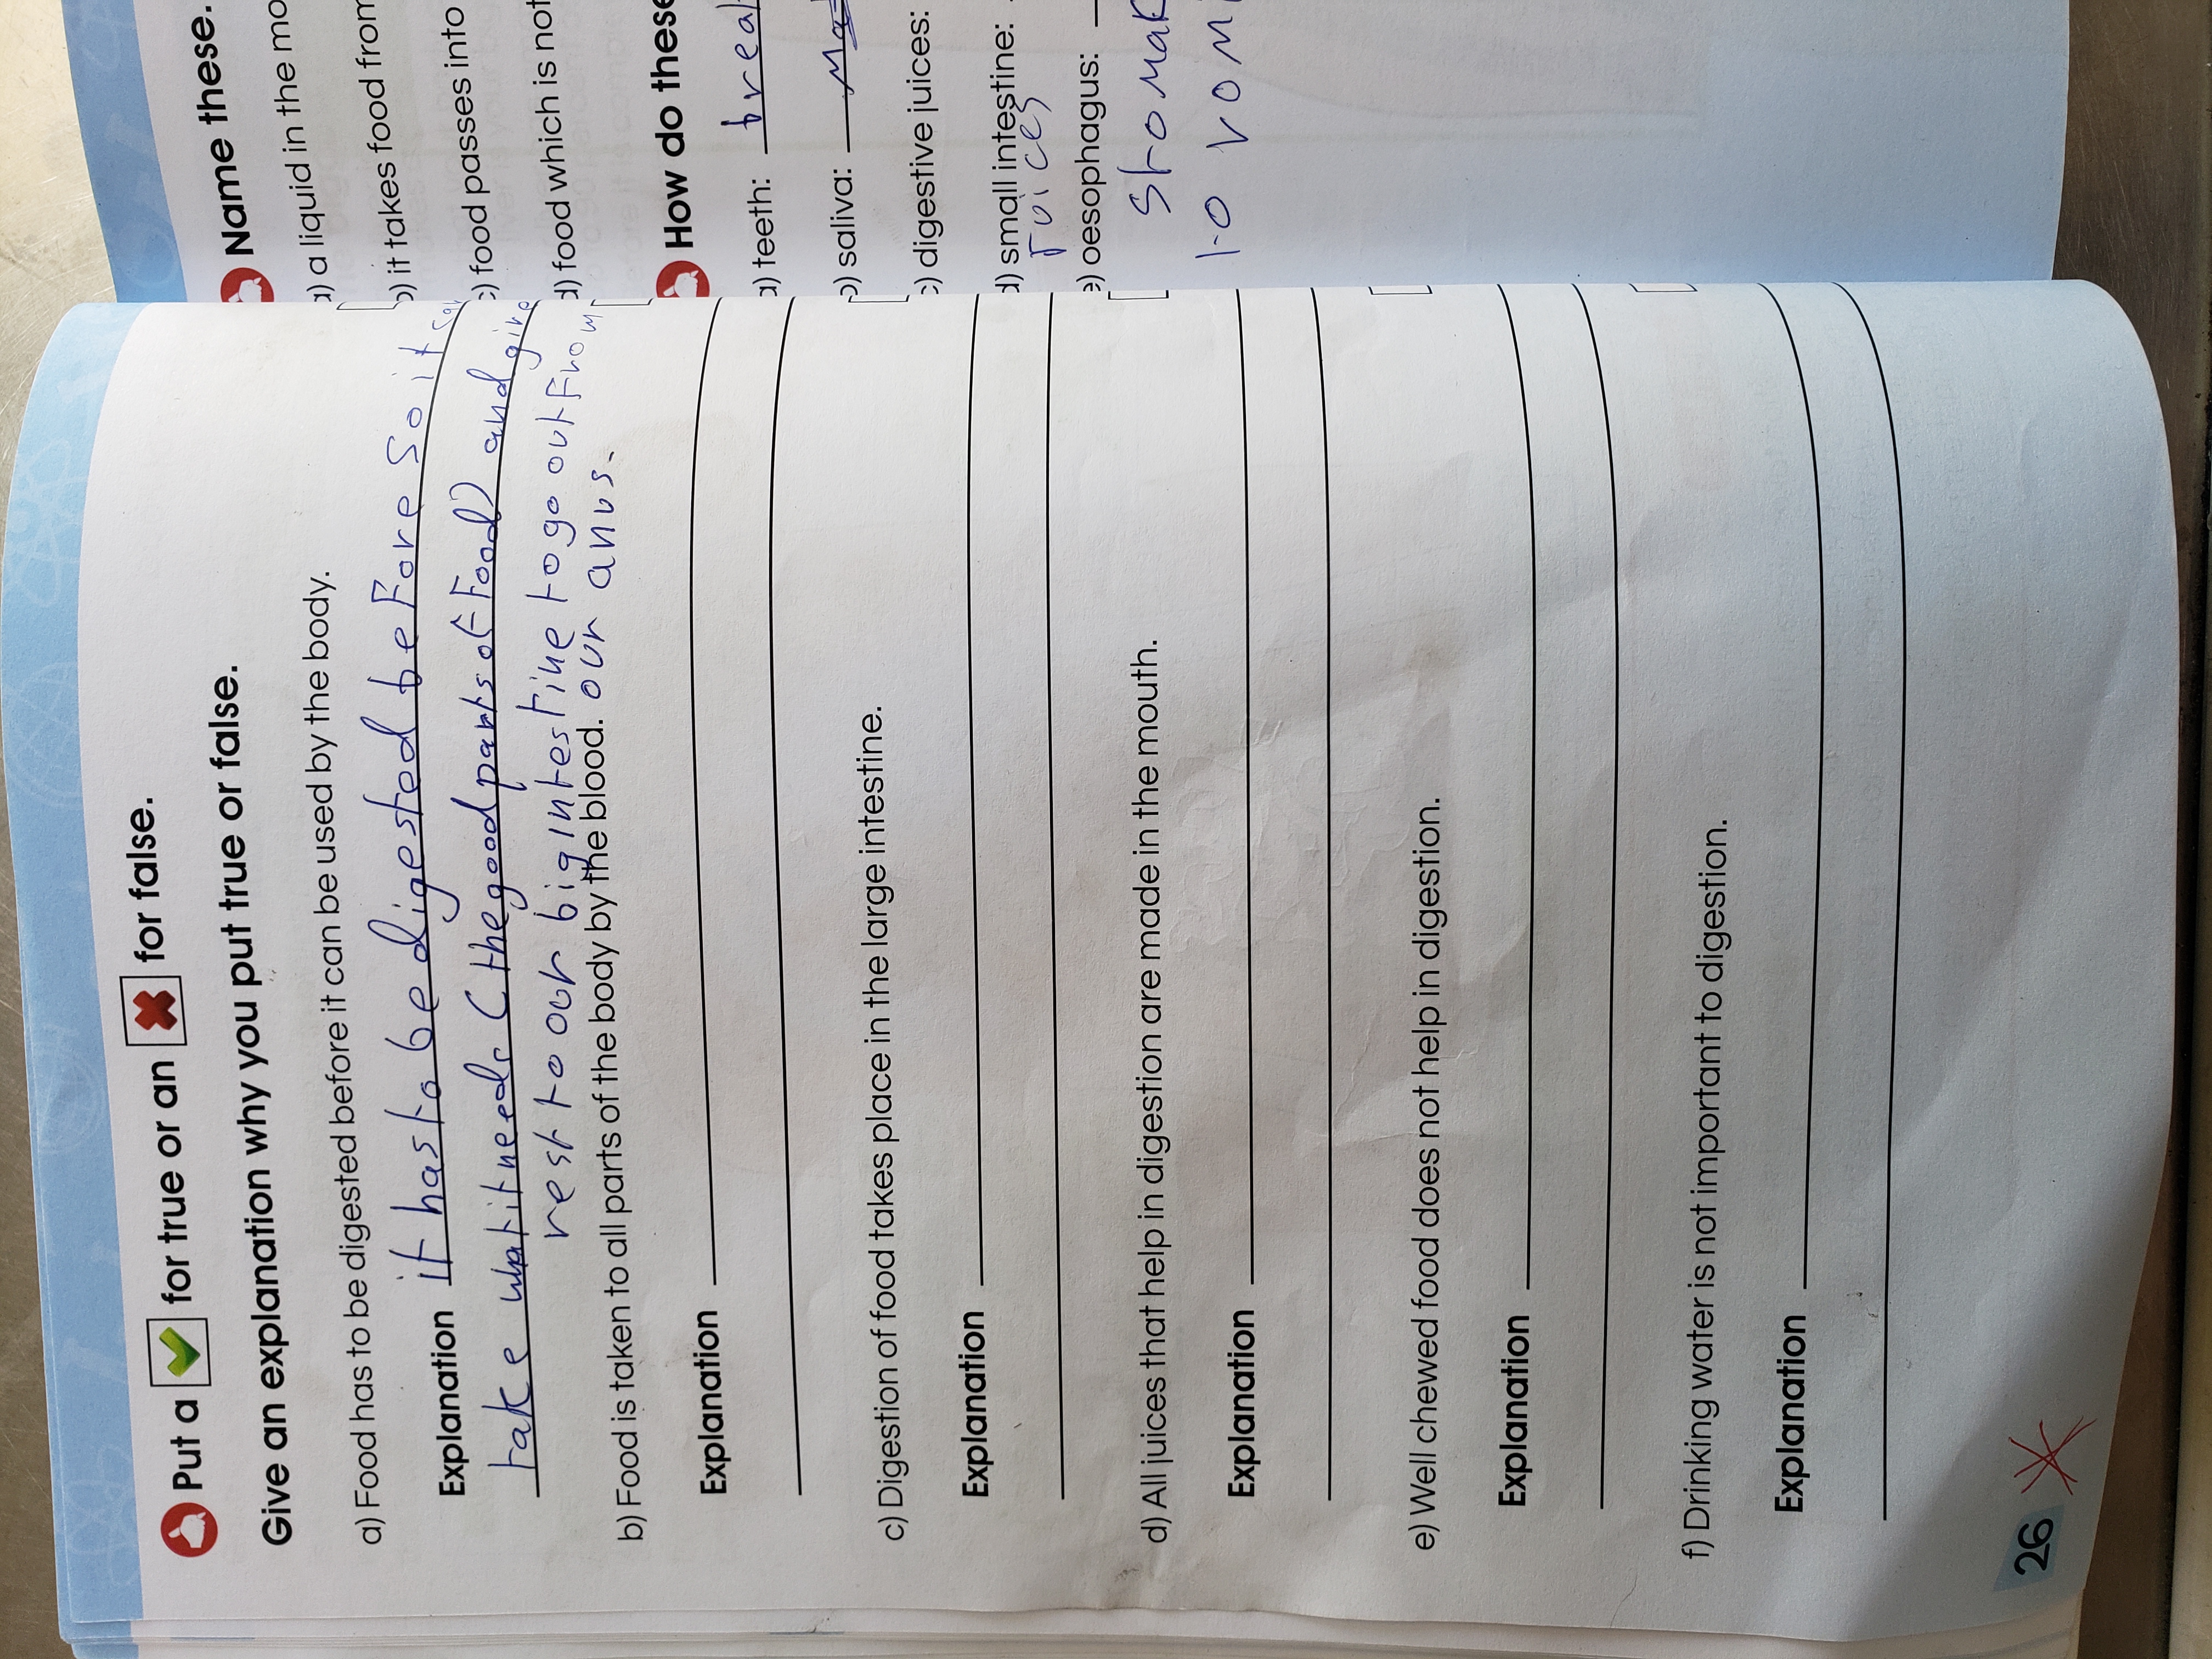 Put a for true or an for false.
Give an explanation why you put true or false.
a) Food has to be digested before it can be used by the body.
Explanation it has to be digested beFore So it
take whatitneeds (thegoodparts of Food) and give
rest to our big intestine to go out From
our anus.
b) Food is taken to all parts of the body by the blood.
Explanation
c) Digestion of food takes place in the large intestine.
Explanation
d) All juices that help in digestion are made in the mouth.
Explanation
e) Well chewed food does not help in digestion.
Explanation
f) Drinking water is not important to digestion.
Explanation
26
Name these.
a) a liquid in the mo
b) it takes food from
c) food passes into
d) food which is not
How do these
a) teeth: brea
b) saliva:
c) digestive juices:
d) small intestine:
Juices
e) oesophagus:
Stomak
to vomi